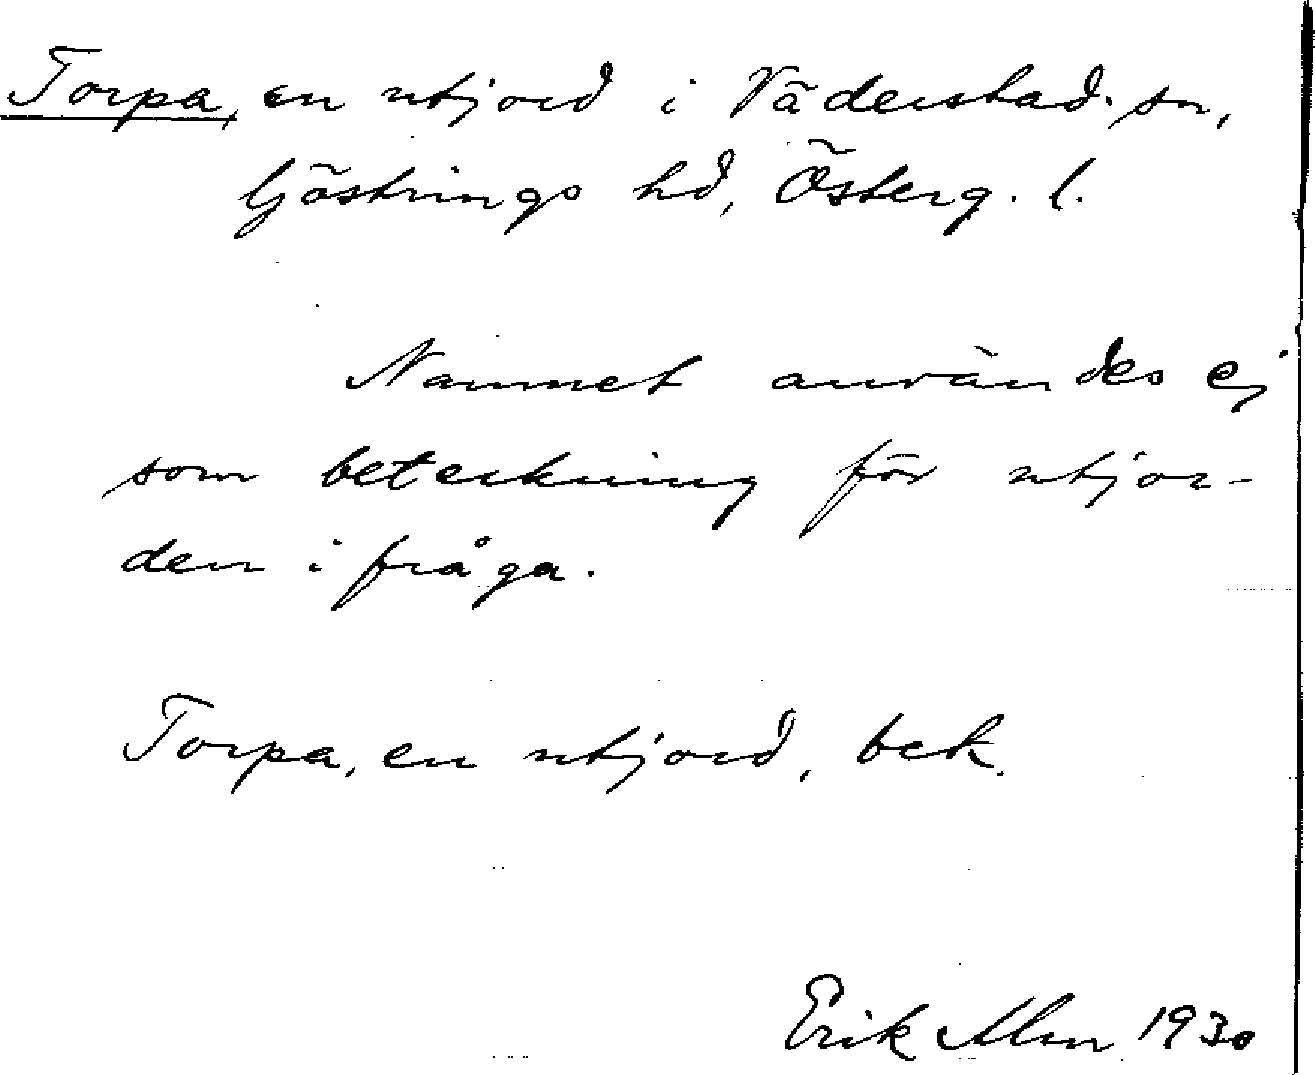 Torpa, en utjord i Väderstad sn,
Göstrings hd, Österg. l.
Namnet användes ej
som beteckning för utjor-
den i fråga.
Torpa, en utjord, bek.
Erik Alm 1930